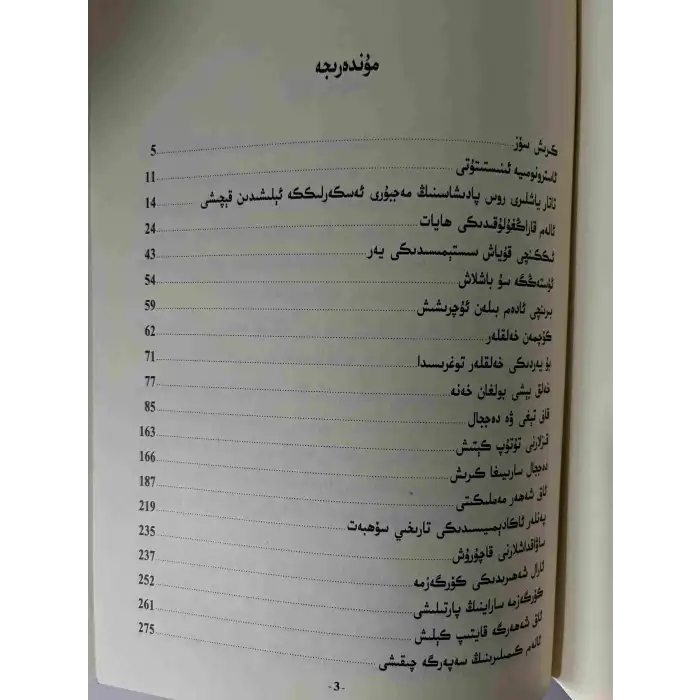 مۇندەرىجە
كىرىش سۆز 5
ئاسترونومىيە ئىنىستىتۇتى 11
تاتار ياشلىرى روس پادىشاسىنىڭ مەجبۇرى ئەسكەرلىككە ئېلىشدىن قېچىشى 14
ئالەم قاراڭغۇلۇقىدىكى ھايات 24
ئىككىنچى قۇياش سىستېمىسىدىكى يەر 43
ئۈستەڭگە سۇ باشلاش 54
بىرىنچى ئادەم بىلەن ئۇچرىشىش 59
كۆچمەن خەلقلەر 62
بۇ يەردىكى خەلقلەر توغرىسىدا 71
خەلق بېشى بولغان خەنە 77
قاق تېغى ۋە دەججال 85
قىزلارنى تۇتۇپ كېتىش 163
دەججال سارىيىغا كىرىش 166
ئاق شەھەر مەملىكىتى 187
پەنلەر ئاكادېمىيىسىدىكى تارىخىي سۆھبەت 219
ساۋاقداشلارنى قاچۇرۇش 235
ئارال شەھرىدىكى كۆرگەزمە 237
كۆرگەزمە سارىينىڭ پارتىلىشى 252
ئاق شەھەرگە قايتىپ كېلىش 261
ئالەم كېمىلىرىنىڭ سەپەرگە چىقىشى 275
- 3 -